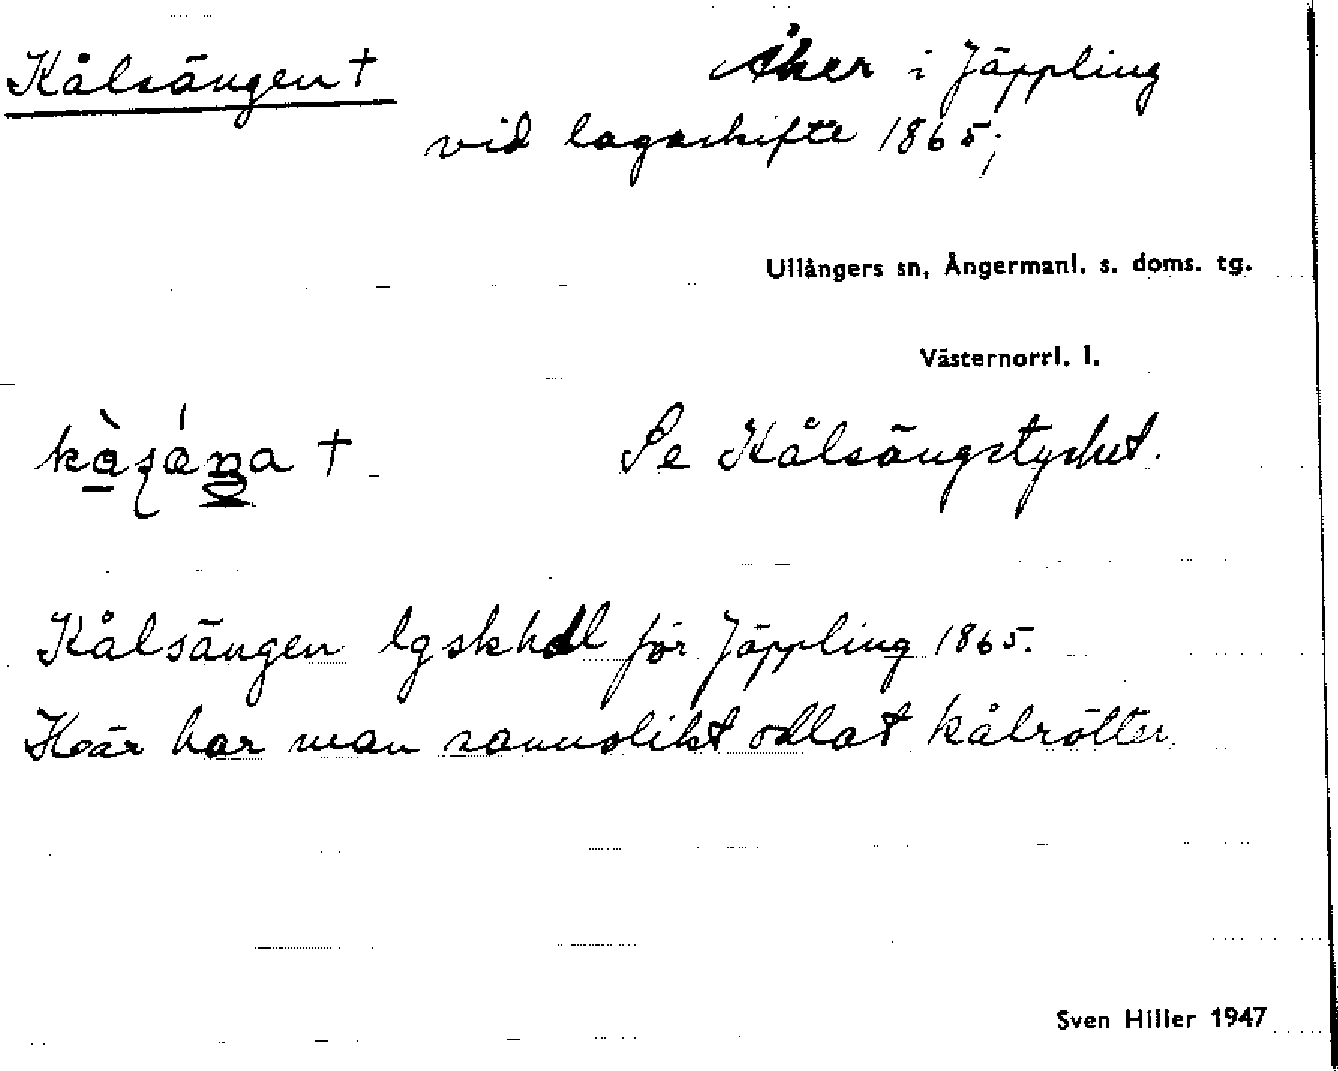 Kålsängen † Åker i Jäppling
vid lagaskifte 1865;
Ullångers sn, Ångermanl. s. doms. tg.
Västernorrl. l.
† Se Kålsängstycket.
Kålsängen lgskhdl för Jäppling 1865.
Här har man sannolikt odlat kålrötter.
Sven Hiller 1947